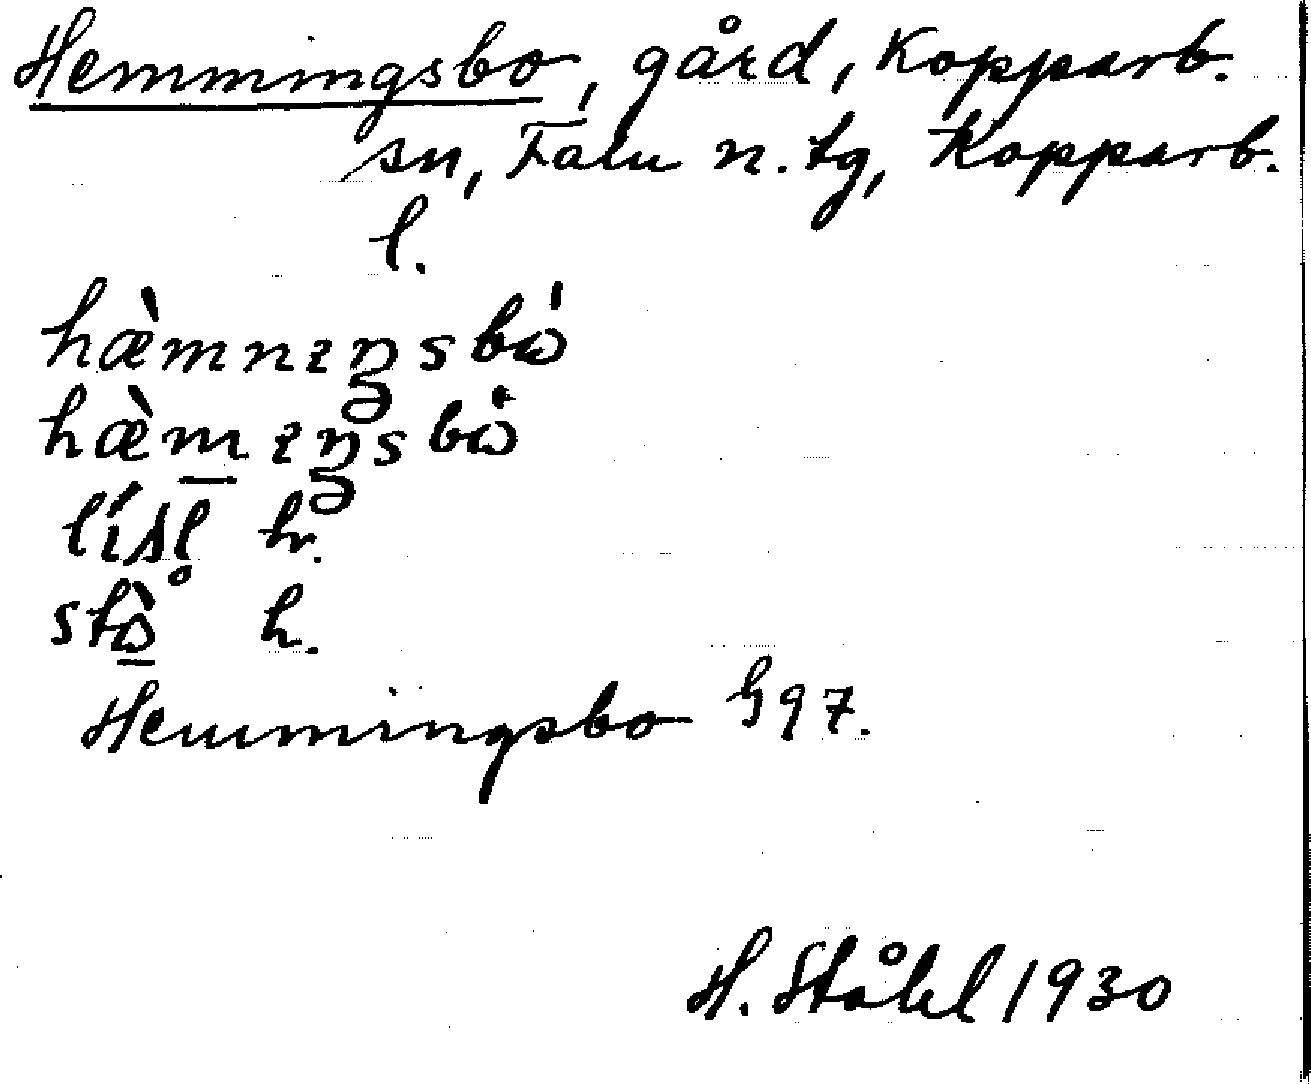 Hemmingsbo, gård, Kopparb.
sn, Falu n. tg, Kopparb.
l.
hæ̀mnɪŋsbὼ
hæ̀m̲ɪŋsbὼ
lísl h.
stὼ̲ h.
Hemmingsbo G97.
H. Ståhl 1930